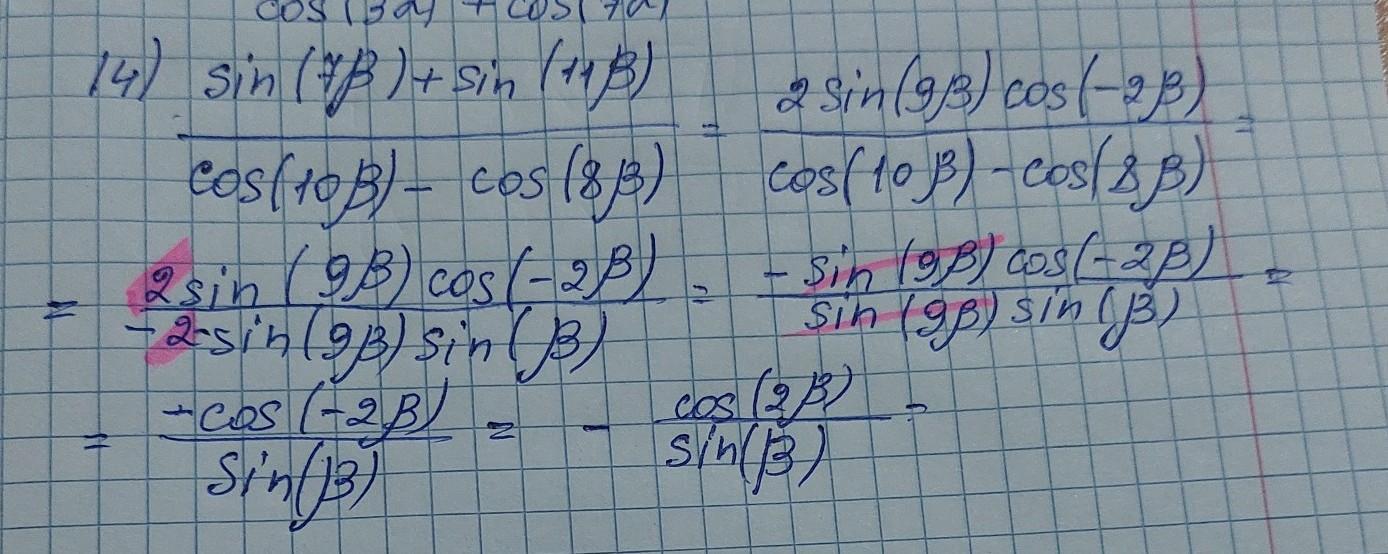 cos(3α) + cos(7α)
14) sin(7β)+sin(11β) / cos(10β)- cos(8β) = 2sin(9β)cos(-2β) / cos(10β)-cos(8β) =
= 2sin(9β)cos(-2β) / -2sin(9β)sin(β) = -sin(9β)cos(-2β) / sin(9β)sin(β) =
= -cos(-2β) / sin(β) = - cos(2β) / sin(β) =